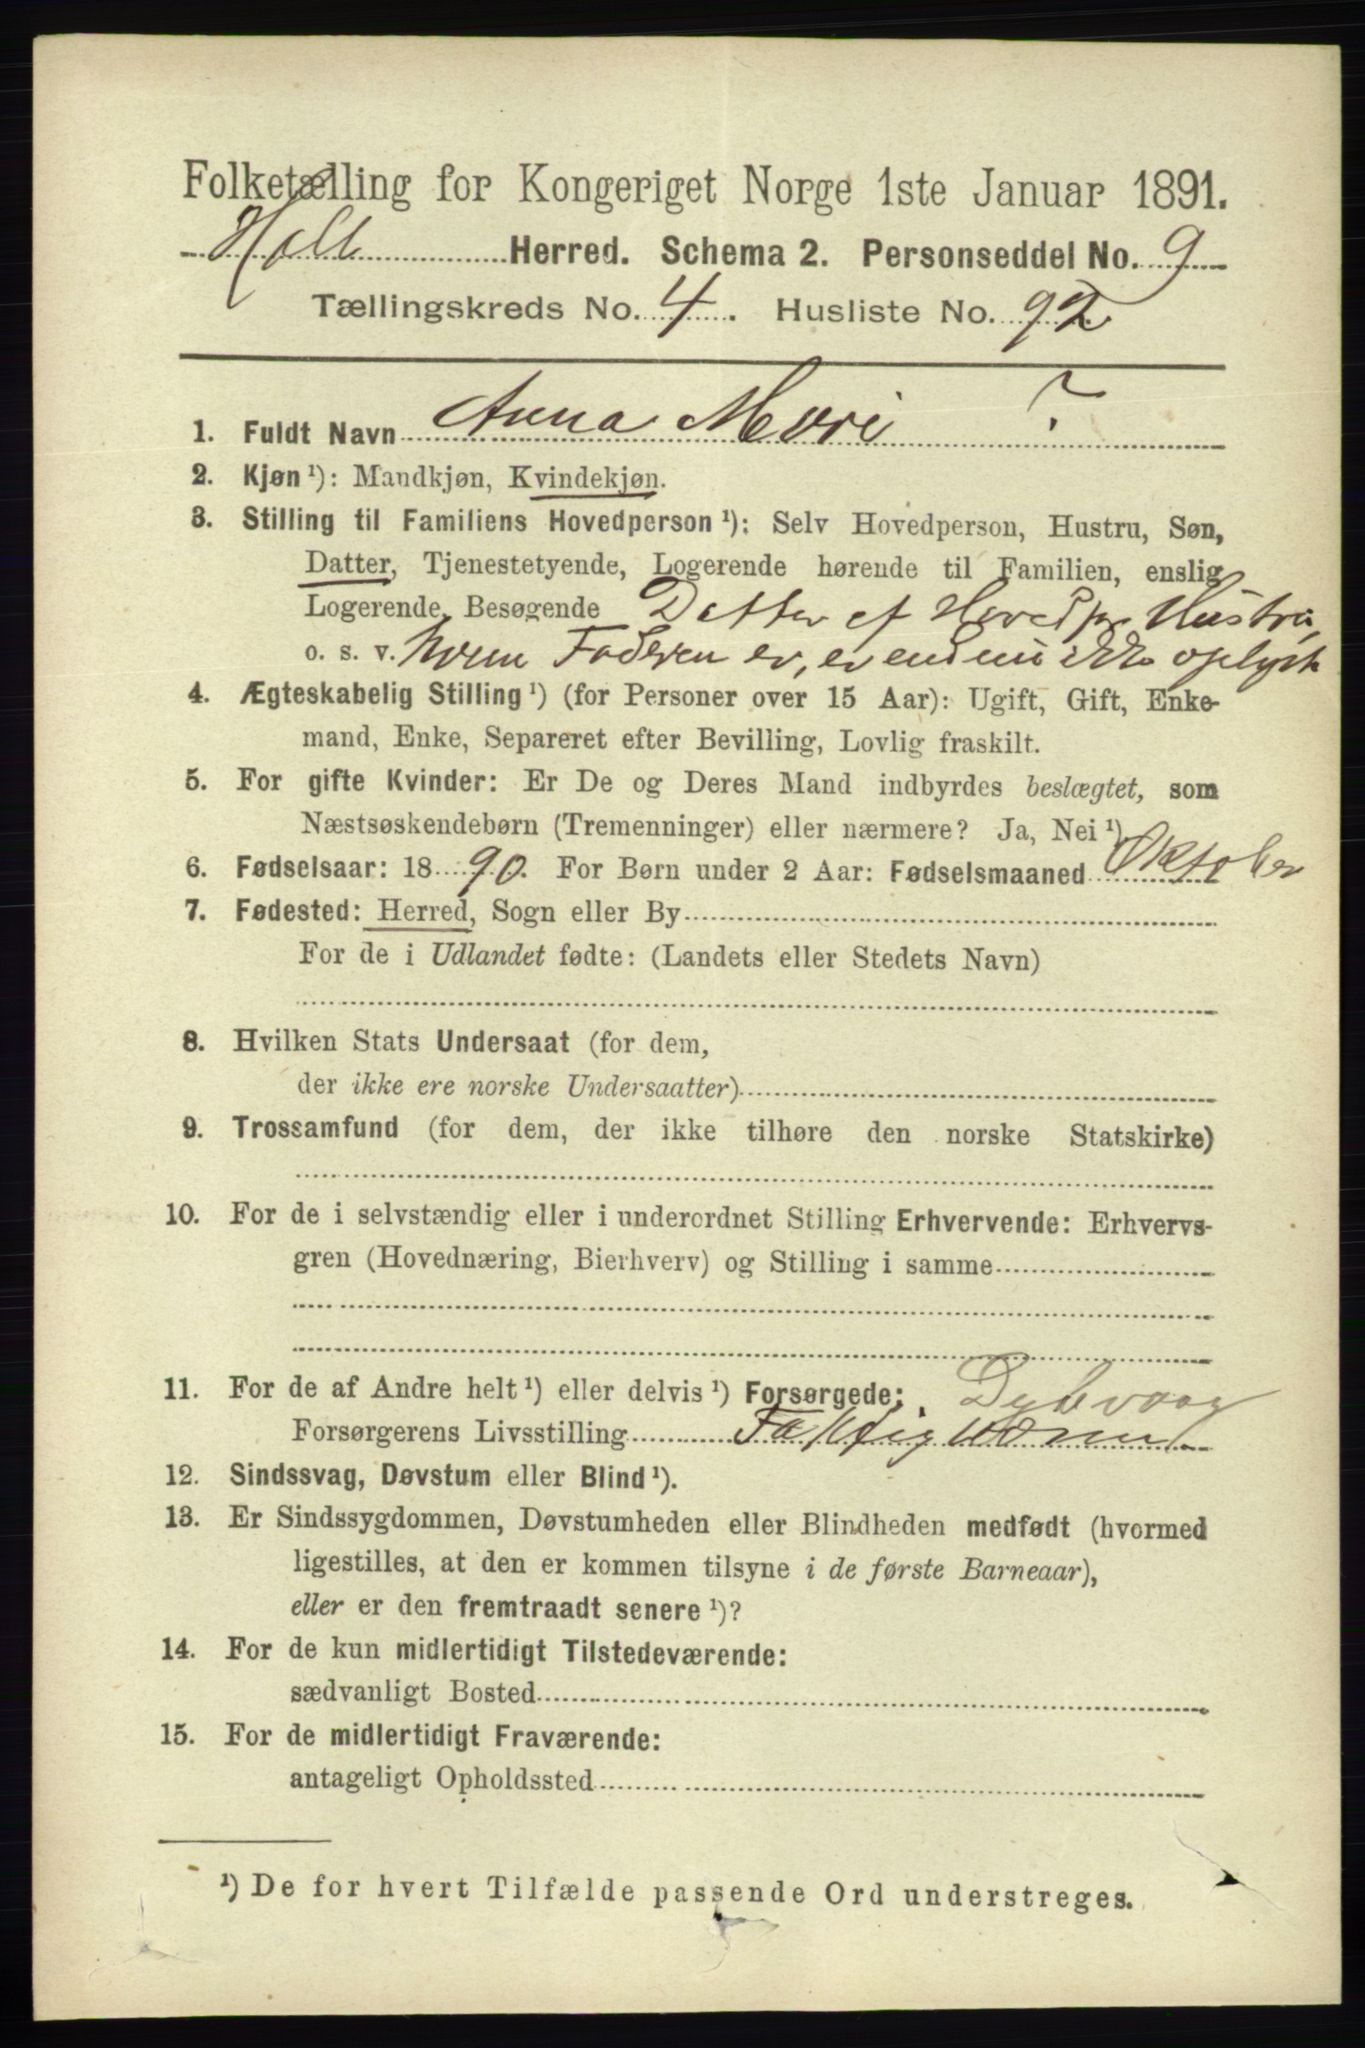 Folketælling for Kongeriget Norge 1ste Januar 1891.
Holt Herred. Schema 2. Personseddel No. 9
Tællingskreds No. 4. Husliste No. 92
1. Fuldt Navn Anna Mari ?
2. Kjøn ¹): Mandkjøn, Kvindekjøn.
3. Stilling til Familiens Hovedperson ¹): Selv Hovedperson, Hustru, Søn,
Datter, Tjenestetyende, Logerende hørende til Familien, enslig
Logerende, Besøgende Datter af Hovedps Hustru,
o. s. v. hvem Faderen er, er endnu ikke oplyst
4. Ægteskabelig Stilling ¹) (for Personer over 15 Aar): Ugift, Gift, Enke-
mand, Enke, Separeret efter Bevilling, Lovlig fraskilt.
5. For gifte Kvinder: Er De og Deres Mand indbyrdes beslægtet, som
Næstsøskendebørn (Tremenninger) eller nærmere? Ja, Nei ¹)
6. Fødselsaar: 18 90. For Børn under 2 Aar: Fødselsmaaned Oktober
7. Fødested: Herred, Sogn eller By
For de i Udlandet fødte: (Landets eller Stedets Navn)
8. Hvilken Stats Undersaat (for dem,
der ikke ere norske Undersaatter)
9. Trossamfund (for dem, der ikke tilhøre den norske Statskirke)
10. For de i selvstændig eller i underordnet Stilling Erhvervende: Erhvervs-
gren (Hovednæring, Bierhverv) og Stilling i samme
11. For de af Andre helt ¹) eller delvis ¹) Forsørgede; Dybvaag
Forsørgerens Livsstilling Fattig
12. Sindssvag, Døvstum eller Blind ¹).
13. Er Sindssygdommen, Døvstumheden eller Blindheden medfødt (hvormed
ligestilles, at den er kommen tilsyne i de første Barneaar),
eller er den fremtraadt senere ¹)?
14. For de kun midlertidigt Tilstedeværende:
sædvanligt Bosted
15. For de midlertidigt Fraværende:
antageligt Opholdssted
¹) De for hvert Tilfælde passende Ord understreges.